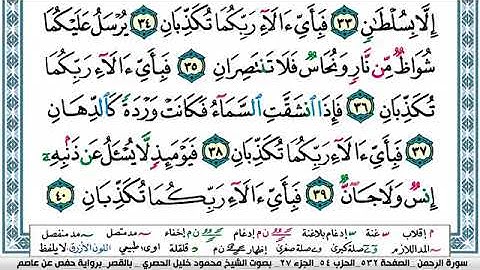 إِلَّا بِسُلْطَٰنٍ ٣٣ فَبِأَيِّ ءَالَآءِ رَبِّكُمَا تُكَذِّبَانِ ٣٤ يُرْسَلُ عَلَيْكُمَا
شُوَاظٌ مِّن نَّارٍ وَنُحَاسٌ فَلَا تَنتَصِرَانِ ٣٥ فَبِأَيِّ ءَالَآءِ رَبِّكُمَا
تُكَذِّبَانِ ٣٦ فَإِذَا ٱنشَقَّتِ ٱلسَّمَآءُ فَكَانَتْ وَرْدَةً كَٱلدِّهَانِ
٣٧ فَبِأَيِّ ءَالَآءِ رَبِّكُمَا تُكَذِّبَانِ ٣٨ فَيَوْمَئِذٍ لَّا يُسْـَٔلُ عَن ذَنۢبِهِۦٓ
إِنسٌ وَلَا جَآنٌّ ٣٩ فَبِأَيِّ ءَالَآءِ رَبِّكُمَا تُكَذِّبَانِ ٤٠
م إقلاب س غنة س إدغام بلاغنة ن م إدغام ن م إخفاء مد متصل مد منفصل
مد اللازم صلة كبرى صلة صغرى إظهار ن م قلقلة اوى طبيعي اللون الأزرق لا يلفظ
سورة الرحمن _ الصفحة ٥٣٢_ الحزب ٥٤_ الجزء ٢٧_ بصوت الشيخ محمود خليل الحصري _ بالقصر_ برواية حفص عن عاصم